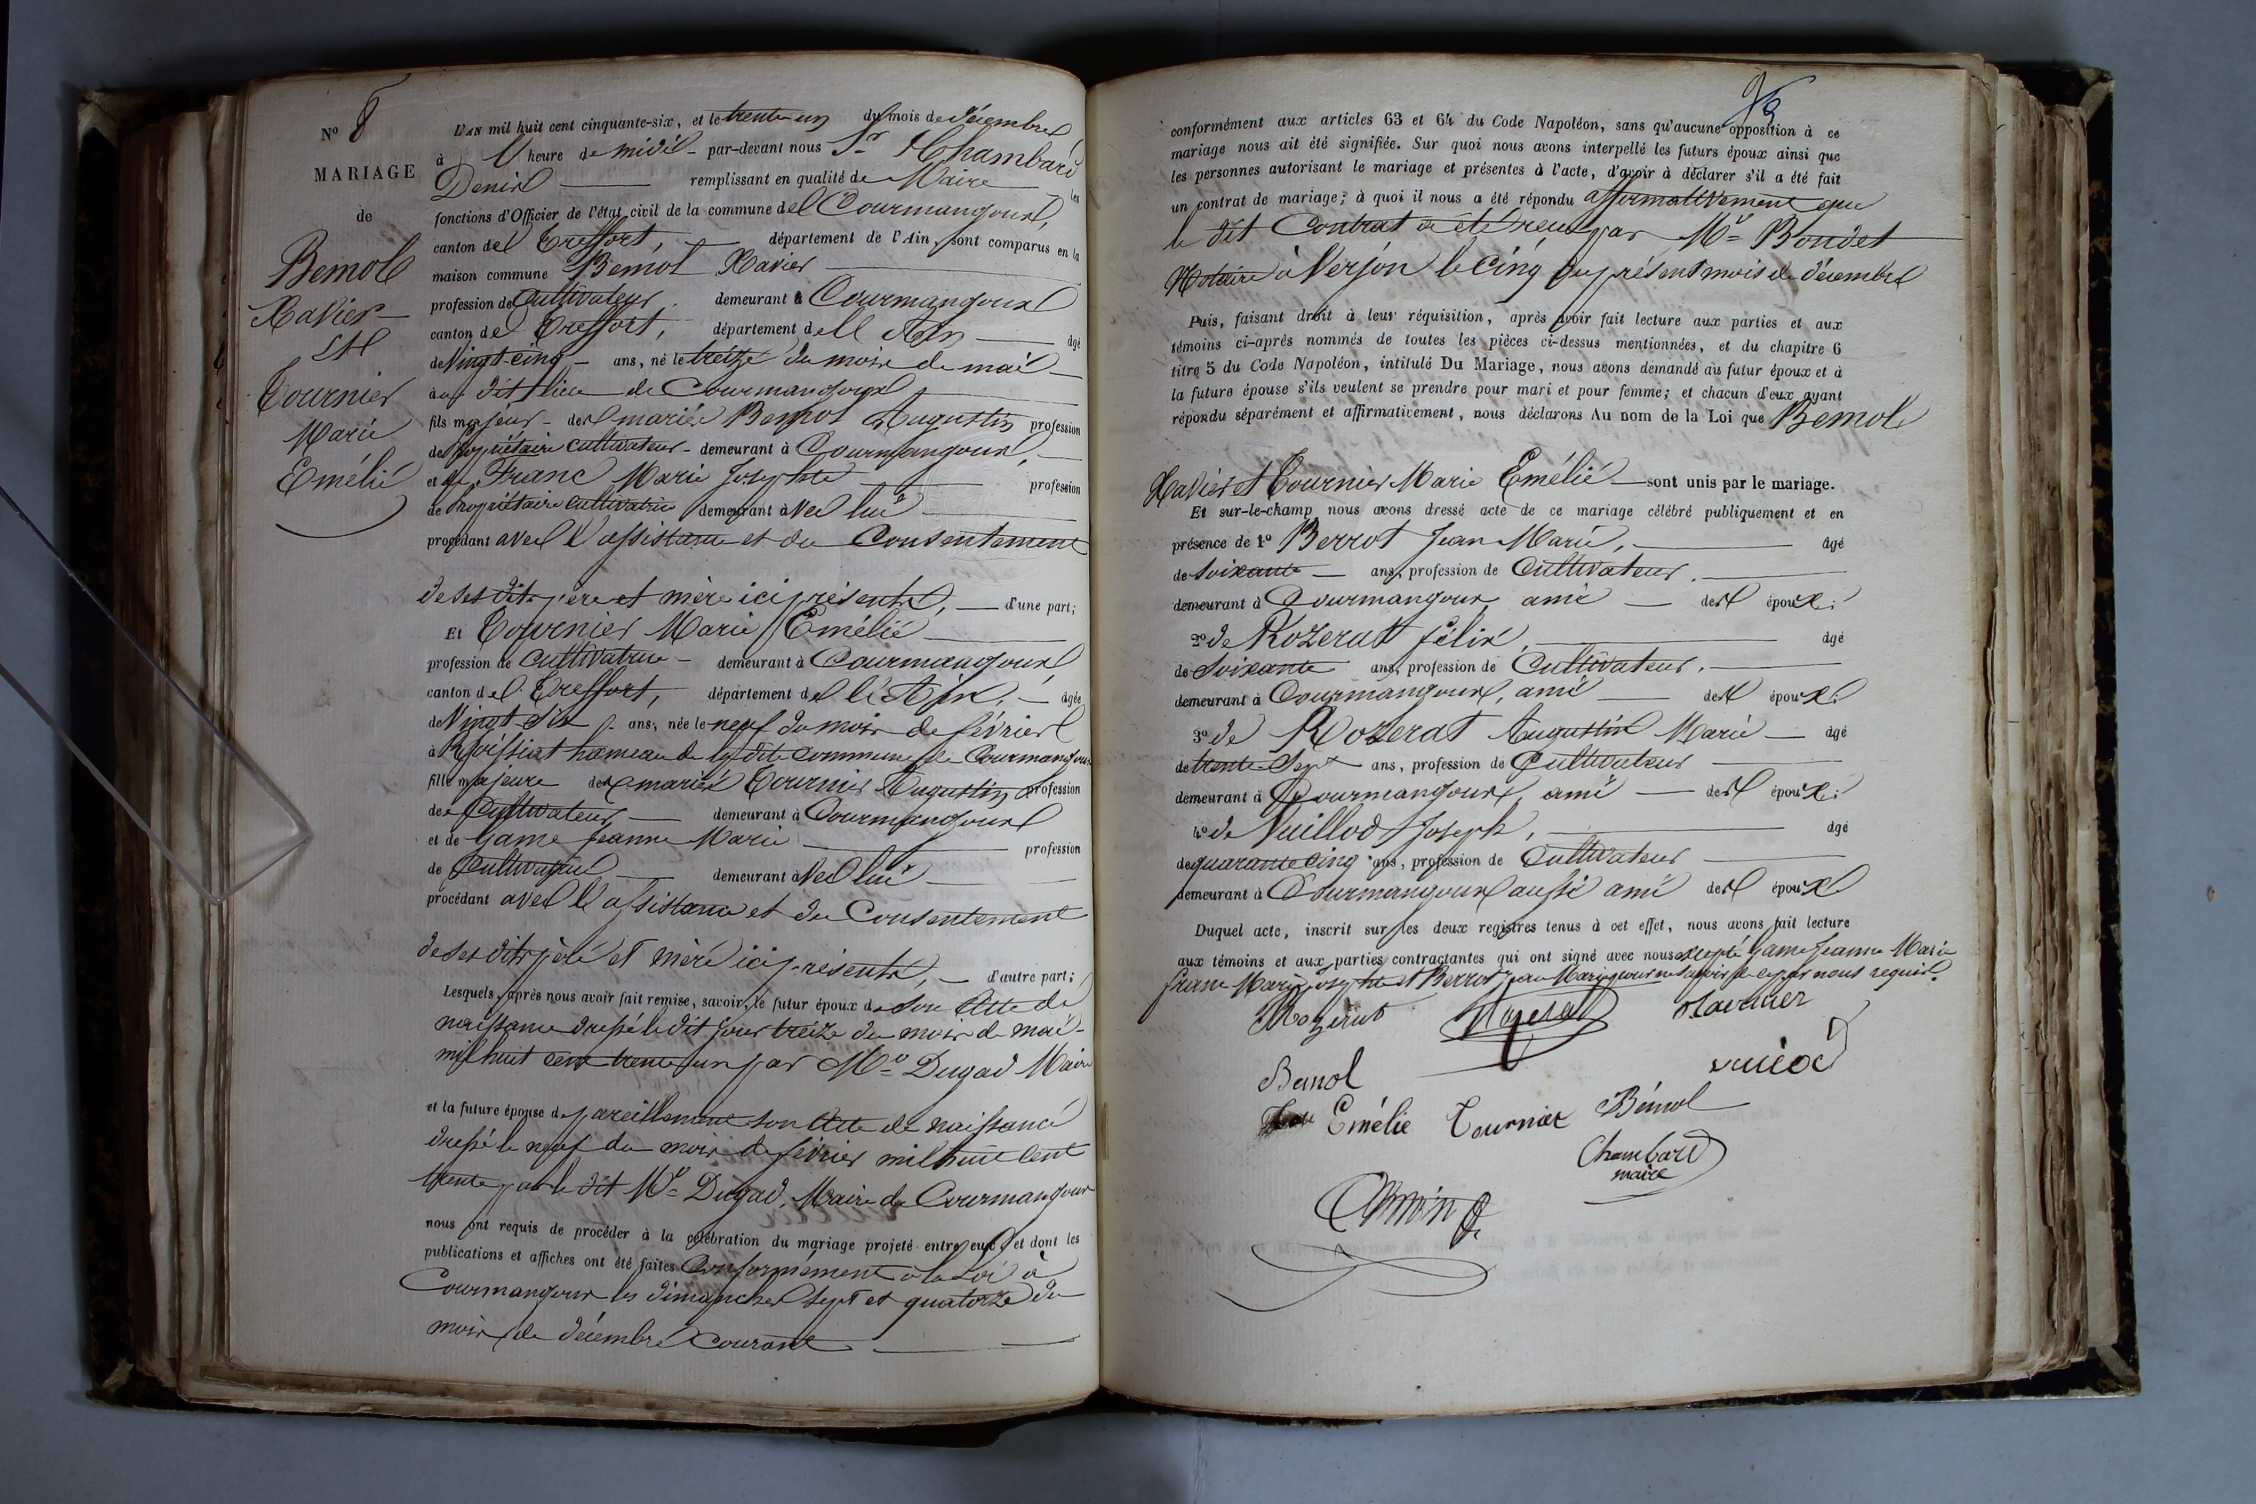 Nº 8
MARIAGE
de
Bemol
Xavier
et
Tournier
Marie
Emélie
L'AN mil huit cent cinquante-six, et le trente-un du mois de décembre
à l' heure de midi par-devant nous Sr Chambard
Denis remplissant en qualité de Maire les
fonctions d'Officier de l'état civil de la commune de Courmangoux,
canton de Treffort, département de l'Ain, sont comparus en la
maison commune Bemol Xavier
profession de Cultivateur, demeurant à Courmangoux
canton de Treffort, département de l'Ain âgé
de Vingt-cinq ans, né le treize du mois de mai
au dit lieu de Courmangoux
fils majeur des mariés Bemol Augustin profession
de Propriétaire cultivateur demeurant à Courmangoux,
et de Franc Marie Josephte profession
de Propriétaire cultivatrice demeurant avec lui
procédant avec l'assistance et du Consentement
de ses dits père et mère ici présents, d'une part;
Et Tournier Marie Emélie
profession de Cultivatrice demeurant à Courmangoux
canton de Treffort, département de l'Ain, âgée
de Vingt-six ans, née le neuf du mois de février
à Roissiat hameau de la dite commune de Courmangoux
fille majeure des mariés Tournier Augustin profession
de Cultivateur demeurant à Courmangoux
et de Game Jeanne Marie profession
de Cultivatrice demeurant avec lui
procédant avec l'assistance et du Consentement
de ses dits père et mère ici présents, d'autre part;
Lesquels, après nous avoir fait remise, savoir, le futur époux de son Acte de
naissance dressé le dit jour treize du mois de mai
mil huit cent trente un par Mr Dugad Maire
et la future épouse de pareillement son Acte de naissance
dressé le neuf du mois de février mil huit cent
trente par le dit Mr Dugad, Maire de Courmangoux
nous ont requis de procéder à la célébration du mariage projeté entre eux, et dont les
publications et affiches ont été faites Conformément à la Loi à
Courmangoux les dimanches sept et quatorze du
mois de décembre courant
conformément aux articles 63 et 64 du Code Napoléon, sans qu'aucune opposition à ce
mariage nous ait été signifiée. Sur quoi nous avons interpellé les futurs époux ainsi que
les personnes autorisant le mariage et présentes à l'acte, d'avoir à déclarer s'il a été fait
un contrat de mariage; à quoi il nous a été répondu affirmativement que
le dit Contrat a été reçu par Mr Boudet
Notaire à Verjon le cinq du présent mois de décembre
Puis, faisant droit à leur réquisition, après avoir fait lecture aux parties et aux
témoins ci-après nommés de toutes les pièces ci-dessus mentionnées, et du chapitre 6
titre 5 du Code Napoléon, intitulé Du Mariage, nous avons demandé au futur époux et à
la future épouse s'ils veulent se prendre pour mari et pour femme; et chacun d'eux ayant
répondu séparément et affirmativement, nous déclarons Au nom de la Loi que Bemol
Xavier et Tournier Marie Emélie sont unis par le mariage.
Et sur-le-champ nous avons dressé acte de ce mariage célébré publiquement et en
présence de 1º Berrot Jean Marie, âgé
de soixante ans, profession de Cultivateur,
demeurant à Courmangoux ami des époux;
2º de Rozerat félix, âgé
de soixante ans, profession de Cultivateur,
demeurant à Courmangoux, ami des époux;
3º de Rozerat Augustin Marie âgé
de trente-sept ans, profession de Cultivateur
demeurant à Courmangoux, ami des époux;
4º de Vuillod Joseph, âgé
de quarante cinq ans, profession de Cultivateur
demeurant à Courmangoux aussi ami des époux
Duquel acte, inscrit sur les deux registres tenus à cet effet, nous avons fait lecture
aux témoins et aux parties contractantes qui ont signé avec nous excepté Game Jeanne Marie
franc Marie Josephte et Berrot jean Marie pour ne savoir de ce par nous requis.
Rozerat Rozerat Tournier
Bemol vuillod
Emélie Tournier Bémol
Chambard
maire